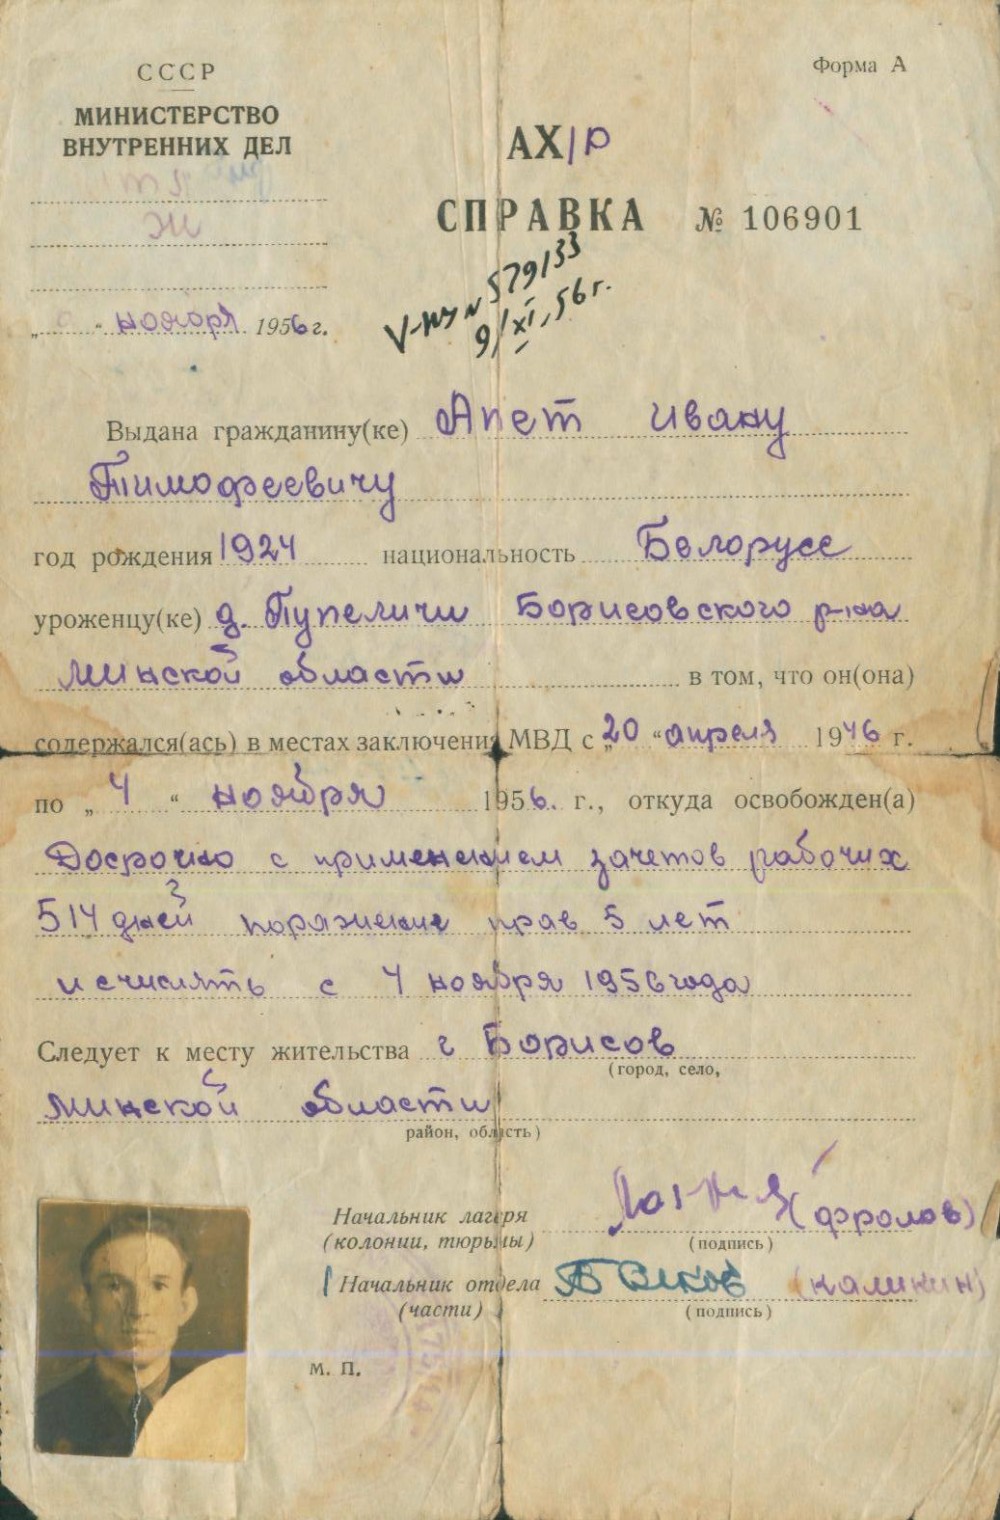 СССР
МИНИСТЕРСТВО
ВНУТРЕННИХ ДЕЛ
Форма А
АХ/р
СПРАВКА № 106901
№ 579133
9/XI.56 г.
„ “ ноября 1956 г.
Выдана гражданину(ке) Апет Ивану
Тимофеевичу
год рождения 1924 национальность Белорусс
уроженцу(ке) д. Пупеличи Борисовского р-на
Минской области в том, что он(она)
содержался(ась) в местах заключения МВД с „20“ апреля 1946 г.
по „4“ ноября 1956. г., откуда освобожден(а)
Досрочно с применением зачетов рабочих
514 дней поражение прав 5 лет
исчислять с 4 ноября 1956 года
Следует к месту жительства г Борисов
(город, село,
Минской области
район, область)
Начальник лагеря
(колонии, тюрьмы) (Фролов)
(подпись)
Начальник отдела (Калинин)
(части) (подпись)
М. П.